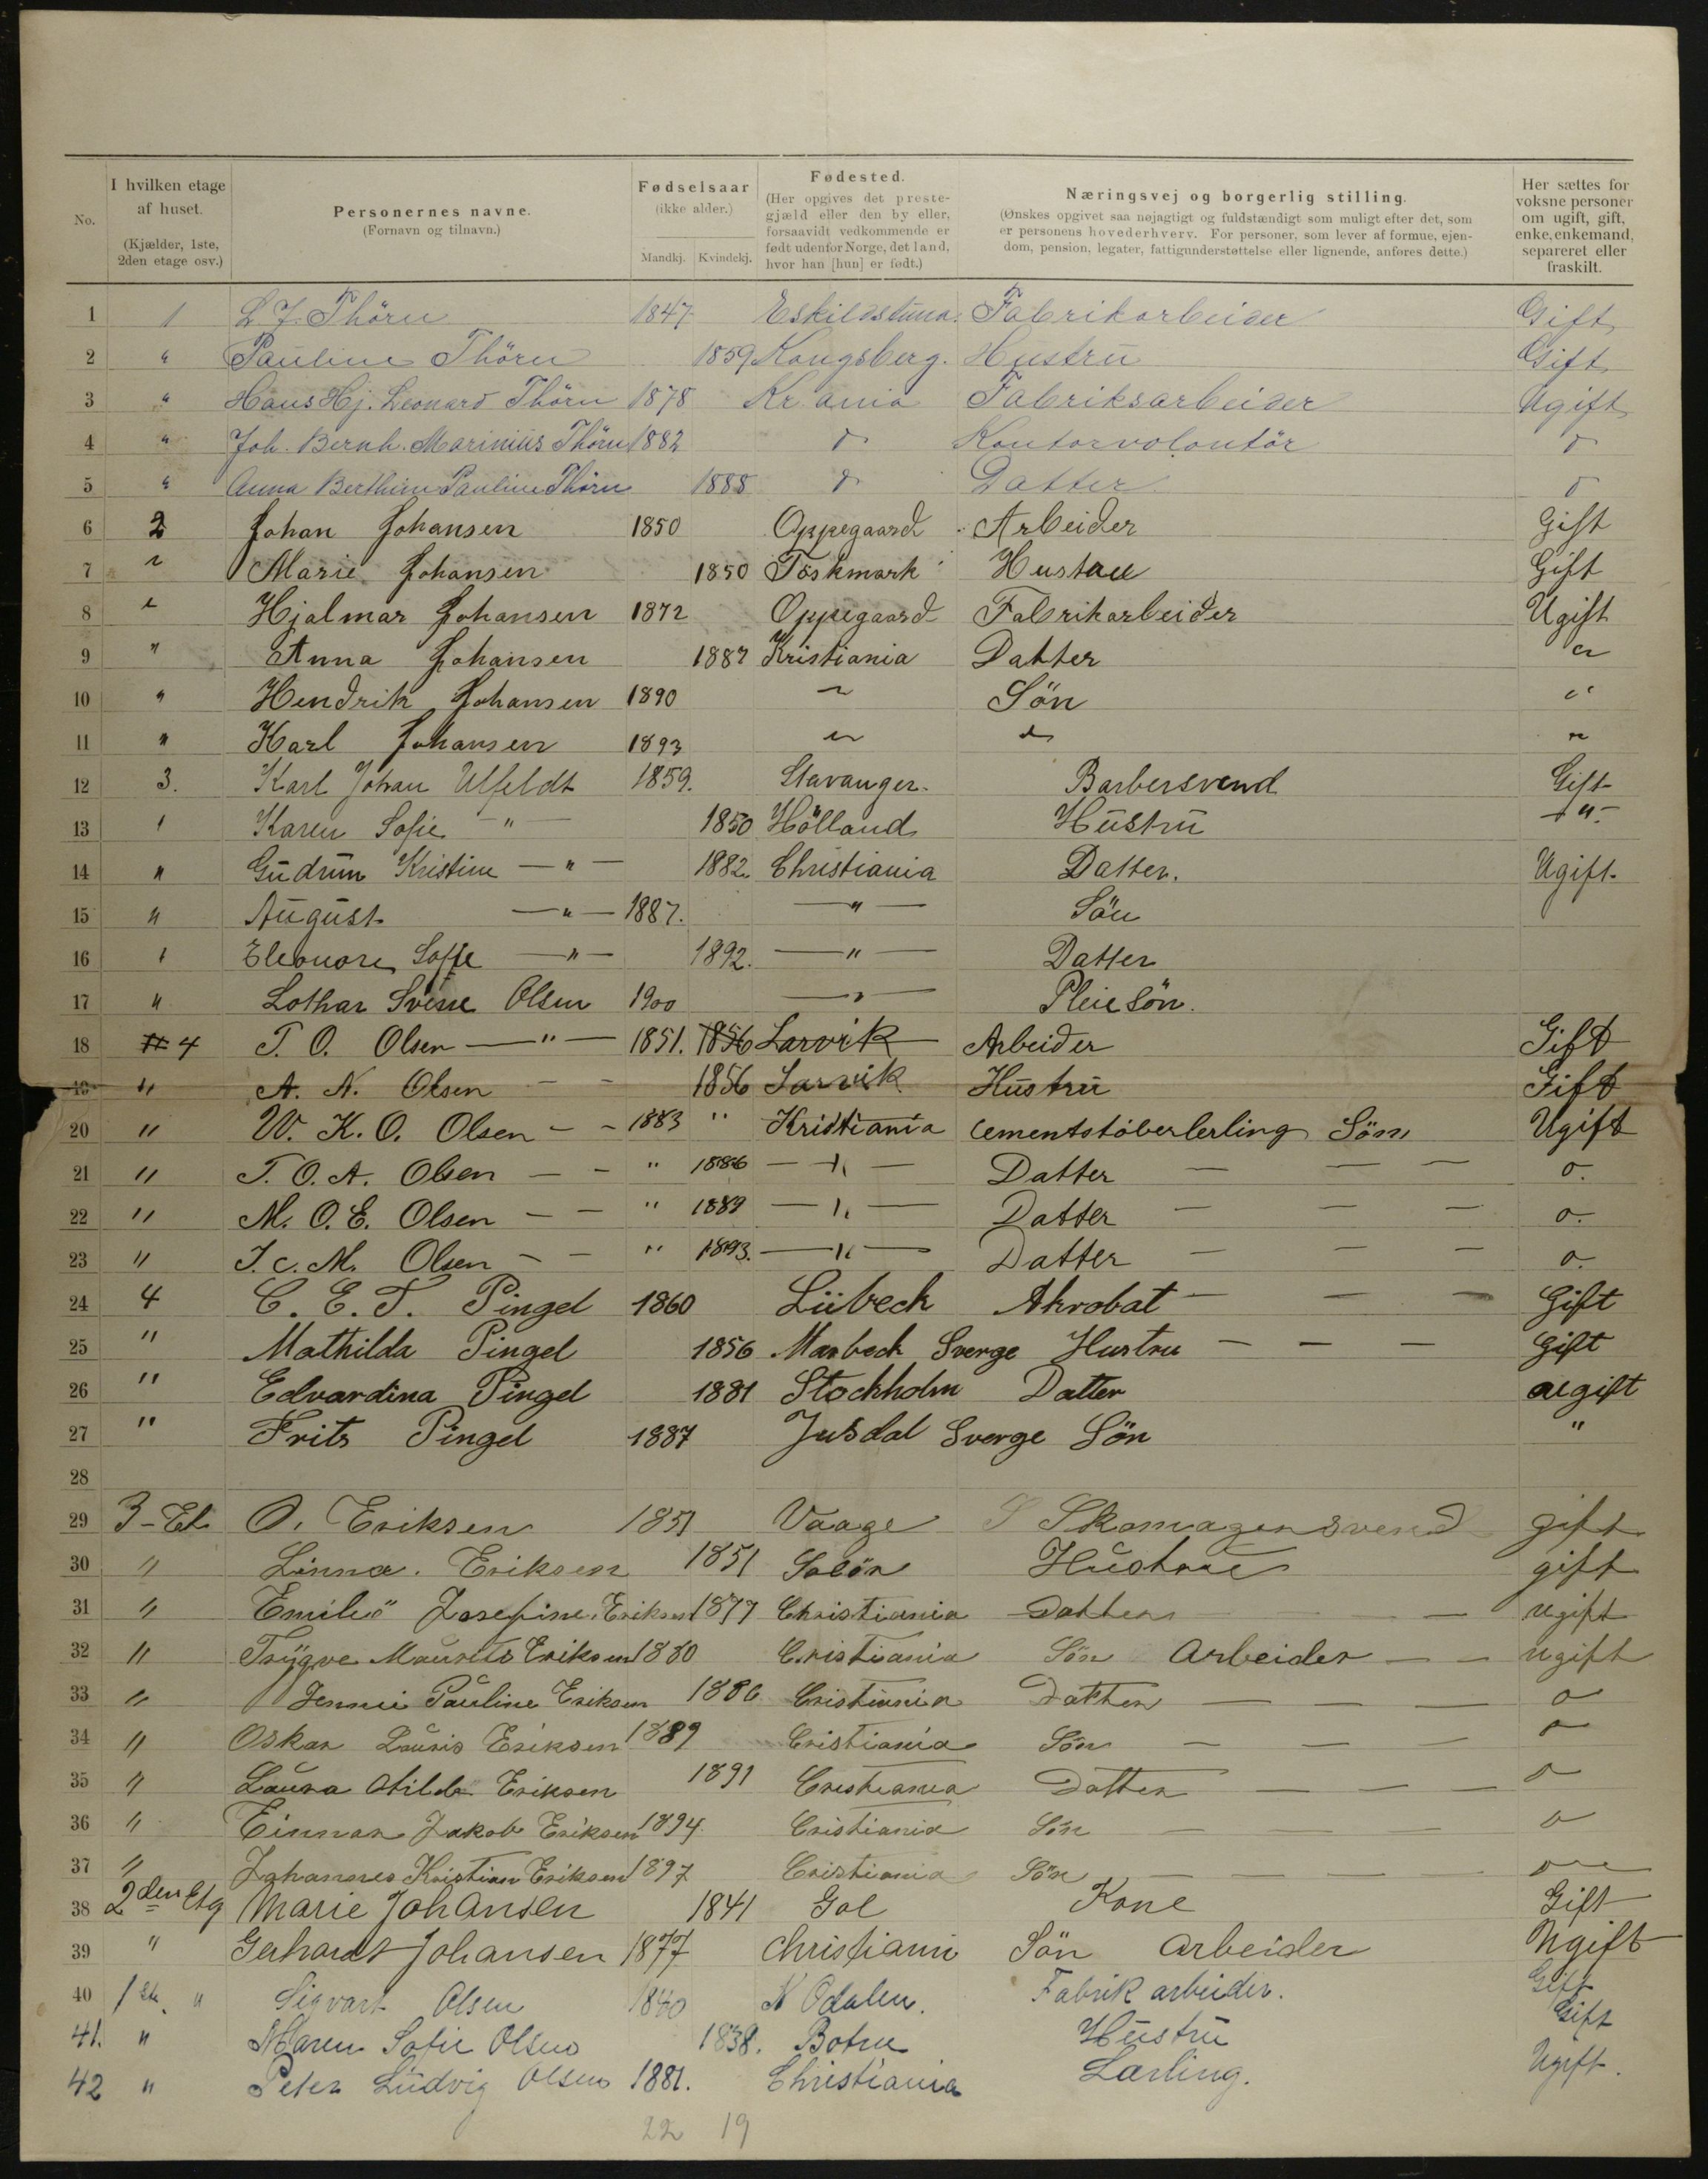 No. | I hvilken etage af huset. (Kjælder, 1ste, 2den etage osv.) | Personernes navne. (Fornavn og tilnavn.) | Fødselsaar (ikke alder.) Mandkj. Kvindekj. | Fødested. (Her opgives det prestegjæld eller den by eller, forsaavidt vedkommende er født udenfor Norge, det land, hvor han [hun] er født.) | Næringsvej og borgerlig stilling. (Ønskes opgivet saa nøjagtigt og fuldstændigt som muligt efter det, som er personens hovederhverv. For personer, som lever af formue, ejendom, pension, legater, fattigunderstøttelse eller lignende, anføres dette.) | Her sættes for voksne personer om ugift, gift, enke, enkemand, separeret eller fraskilt.
1 1 L J. Thörn 1847 Eskilstuna. Fabrikarbeider Gift
2 " Pauline Thörn 1859 Kongsberg. Hustru Gift
3 " Hans Hj. Leonard Thörn 1878 Kr ania Fabriksarbeider Ugift
4 " Joh. Bernh. Marinius Thörn 1882 d Kontorvolontör d
5 " Anna Berthine Pauline Thörn 1888 d Datter d
6 2 Johan Johansen 1850 Oppegaard Arbeider Gift
7 " Marie Johansen 1850 Hustru Gift
8 " Hjalmar Johansen 1872 Oppegaard Fabrikarbeider Ugift
9 " Anna Johansen 1887 Kristiania Datter "
10 " Hendrik Johansen 1890 " Sön "
11 " Karl Johansen 1893 " " "
12 3. Karl Johan Ulfeldt 1859. Stavanger. Barbersvend Gift
13 " Karen Sofie — " — 1850 Hölland Hustru — " —
14 " Gudrun Kristine — " — 1882. Christiania Datter. Ugift.
15 " August — " — 1887. — " — Sön
16 " Eleonore Sofie — " — 1892. — " — Datter
17 " Lothar Olsen 1900 — " — Pleiesön.
18 4 T. O. Olsen — " — 1851. 1856 Larvik Arbeider Gift
19 " A. N. Olsen - - 1856 Larvik Hustru Gift
20 " W. K. O. Olsen - - 1883 " Kristiania cementstöberlerling Sön Ugift
21 " T. O. A. Olsen - - " 1886 — " — Datter — — — o.
22 " M. O. E. Olsen - - " 1889 — " — Datter — — — o.
23 " J. C. M. Olsen - - " 1893. — " — Datter — — — o.
24 4 C. E. T. Pingel 1860 Lübeck Akrobat — — — Gift
25 " Mathilda Pingel 1856 Marbeck Sverge Hustru — — — Gift
26 " Edvardina Pingel 1881 Stockholm Datter ugift
27 " Frits Pingel 1887 Jusdal Sverge Sön "
28
29 3-Et. O. Eriksen 1851 Vaage Skomagersvend gift
30 " Linna. Eriksen 1851 Solör Hustrue gift
31 " Josefine Eriksen 1877 Christiania Datter — ugift
32 " Trygve Eriksen 1880 Cristiania Sön Arbeider — — ugift
33 " Jennie Pauline Eriksen 1886 Cristiania Datter — — — o
34 " Oskar Lauris Eriksen 1889 Cristiania Sön — — — o
35 " Laura Otilde Eriksen 1891 Cristiania Datter — — — o
36 " Einnar Jakob Eriksen 1894 Cristiania Sön — — — o
37 " Johannes Kristian Eriksen 1897 Cristiania Sön — — — o
38 2den Etg Marie Johansen 1841 Gol Kone Gift
39 " Gerhardt Johansen 1877 Christiani Sön Arbeider Ugift
40 1 Et. " Sigvart Olsen 1840 N Odalen. Fabrik arbeider. Gift
41. " Maren Sofie Olsen 1838. Botne Hustru Gift
42 " Peter Ludvig Olsen 1881. Christiania Lærling. Ugift.
22 19